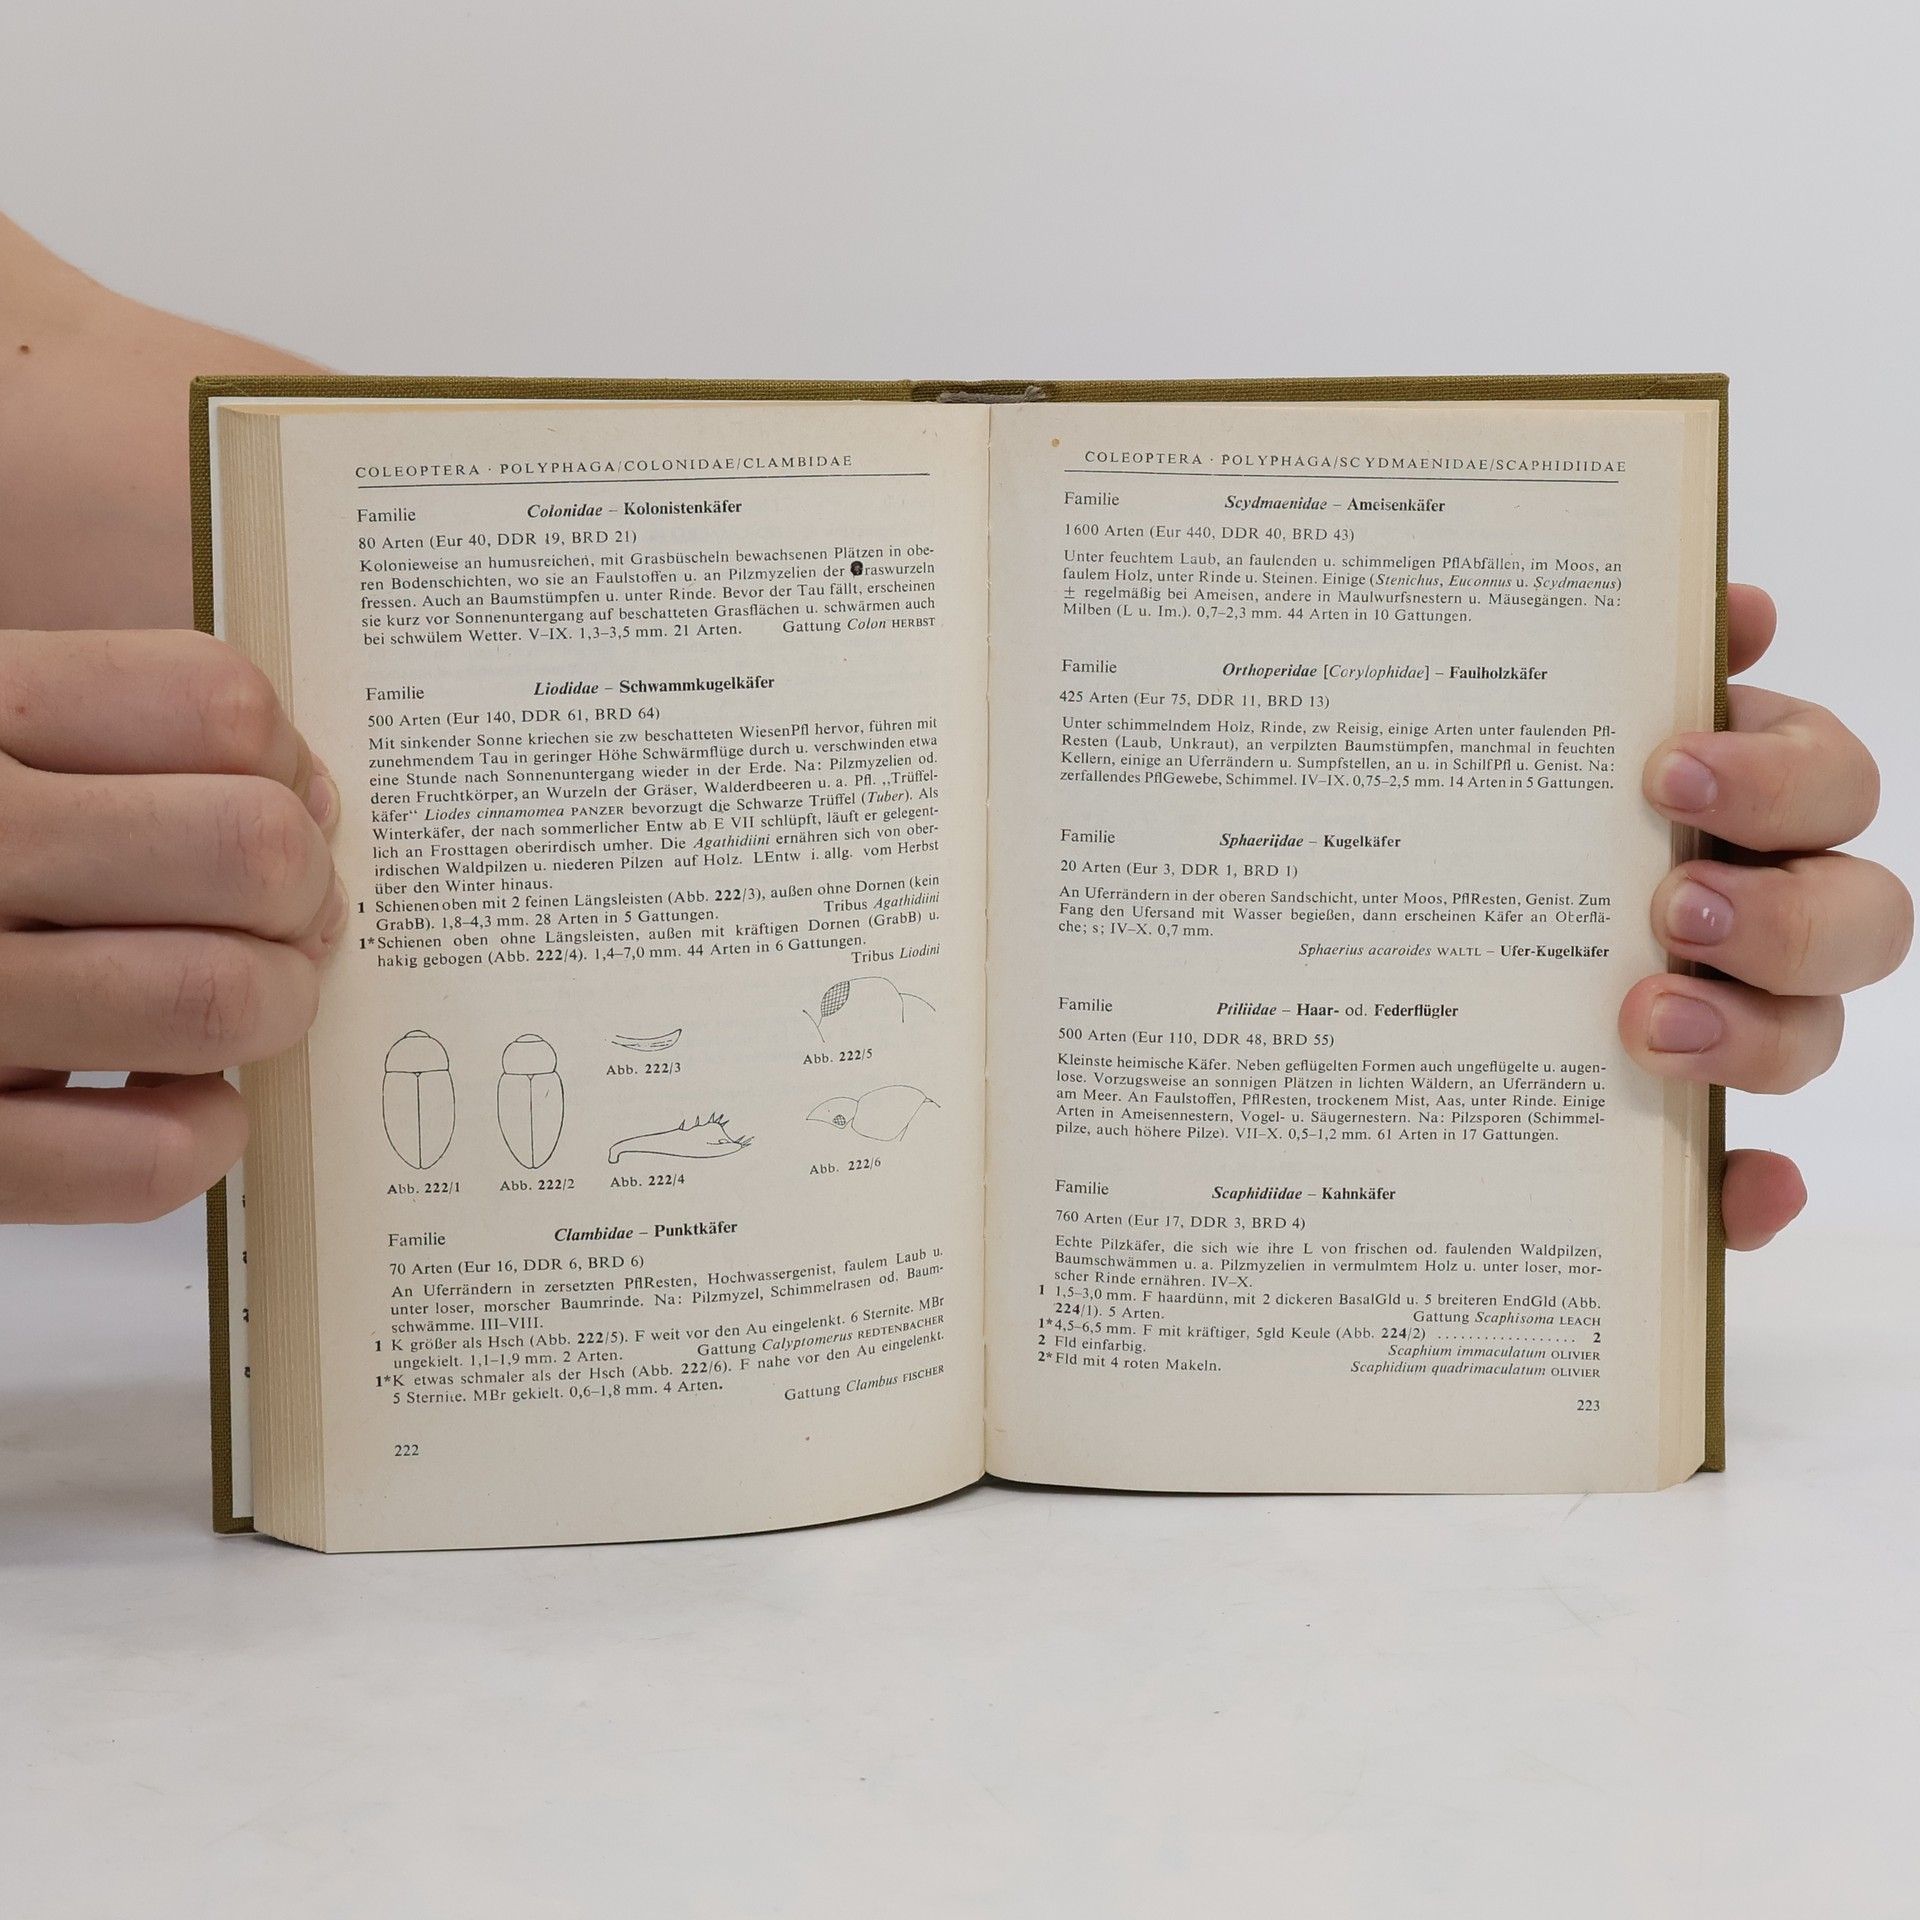 COLEOPTERA · POLYPHAGA/COLONIDAE/CLAMBIDAE
Familie Colonidae – Kolonistenkäfer
80 Arten (Eur 40, DDR 19, BRD 21)
Kolonieweise an humusreichen, mit Grasbüscheln bewachsenen Plätzen in obe-
ren Bodenschichten, wo sie an Faulstoffen u. an Pilzmyzelien der raswurzeln
fressen. Auch an Baumstümpfen u. unter Rinde. Bevor der Tau fällt, erscheinen
sie kurz vor Sonnenuntergang auf beschatteten Grasflächen u. schwärmen auch
bei schwülem Wetter. V–IX. 1,3–3,5 mm. 21 Arten. Gattung Colon HERBST
Familie Liodidae – Schwammkugelkäfer
500 Arten (Eur 140, DDR 61, BRD 64)
Mit sinkender Sonne kriechen sie zw beschatteten WiesenPfl hervor, führen mit
zunehmendem Tau in geringer Höhe Schwärmflüge durch u. verschwinden etwa
eine Stunde nach Sonnenuntergang wieder in der Erde. Na: Pilzmyzelien od.
deren Fruchtkörper, an Wurzeln der Gräser, Walderdbeeren u. a. Pfl. „Trüffel-
käfer“ Liodes cinnamomea PANZER bevorzugt die Schwarze Trüffel (Tuber). Als
Winterkäfer, der nach sommerlicher Entw ab E VII schlüpft, läuft er gelegent-
lich an Frosttagen oberirdisch umher. Die Agathidiini ernähren sich von ober-
irdischen Waldpilzen u. niederen Pilzen auf Holz. LEntw i. allg. vom Herbst
über den Winter hinaus.
1 Schienen oben mit 2 feinen Längsleisten (Abb. 222/3), außen ohne Dornen (kein
GrabB). 1,8–4,3 mm. 28 Arten in 5 Gattungen. Tribus Agathidiini
1* Schienen oben ohne Längsleisten, außen mit kräftigen Dornen (GrabB) u.
hakig gebogen (Abb. 222/4). 1,4–7,0 mm. 44 Arten in 6 Gattungen.
Tribus Liodini
Abb. 222/5
Abb. 222/3
Abb. 222/1
Abb. 222/2
Abb. 222/4
Abb. 222/6
Familie Clambidae – Punktkäfer
70 Arten (Eur 16, DDR 6, BRD 6)
An Uferrändern in zersetzten PflResten, Hochwassergenist, faulem Laub u.
unter loser, morscher Baumrinde. Na: Pilzmyzel, Schimmelrasen od. Baum-
schwämme. III–VIII.
1 K größer als Hsch (Abb. 222/5). F weit vor den Au eingelenkt. 6 Sternite. MBr
ungekielt. 1,1–1,9 mm. 2 Arten. Gattung Calyptomerus REDTENBACHER
1* K etwas schmaler als der Hsch (Abb. 222/6). F nahe vor den Au eingelenkt.
5 Sternite. MBr gekielt. 0,6–1,8 mm. 4 Arten. Gattung Clambus FISCHER
222
COLEOPTERA · POLYPHAGA/SCYDMAENIDAE/SCAPHIDIIDAE
Familie Scydmaenidae – Ameisenkäfer
1600 Arten (Eur 440, DDR 40, BRD 43)
Unter feuchtem Laub, an faulenden u. schimmeligen PflAbfällen, im Moos, an
faulem Holz, unter Rinde u. Steinen. Einige (Stenichus, Euconnus u. Scydmaenus)
± regelmäßig bei Ameisen, andere in Maulwurfsnestern u. Mäusegängen. Na:
Milben (L u. Im.). 0,7–2,3 mm. 44 Arten in 10 Gattungen.
Familie Orthoperidae [Corylophidae] – Faulholzkäfer
425 Arten (Eur 75, DDR 11, BRD 13)
Unter schimmelndem Holz, Rinde, zw Reisig, einige Arten unter faulenden Pfl-
Resten (Laub, Unkraut), an verpilzten Baumstümpfen, manchmal in feuchten
Kellern, einige an Uferrändern u. Sumpfstellen, an u. in SchilfPfl u. Genist. Na:
zerfallendes PflGewebe, Schimmel. IV–IX. 0,75–2,5 mm. 14 Arten in 5 Gattungen.
Familie Sphaeriidae – Kugelkäfer
20 Arten (Eur 3, DDR 1, BRD 1)
An Uferrändern in der oberen Sandschicht, unter Moos, PflResten, Genist. Zum
Fang den Ufersand mit Wasser begießen, dann erscheinen Käfer an Oberflä-
che; s; IV–X. 0,7 mm.
Sphaerius acaroides WALTL – Ufer-Kugelkäfer
Familie Ptiliidae – Haar- od. Federflügler
500 Arten (Eur 110, DDR 48, BRD 55)
Kleinste heimische Käfer. Neben geflügelten Formen auch ungeflügelte u. augen-
lose. Vorzugsweise an sonnigen Plätzen in lichten Wäldern, an Uferrändern u.
am Meer. An Faulstoffen, PflResten, trockenem Mist, Aas, unter Rinde. Einige
Arten in Ameisennestern, Vogel- u. Säugernestern. Na: Pilzsporen (Schimmel-
pilze, auch höhere Pilze). VII–X. 0,5–1,2 mm. 61 Arten in 17 Gattungen.
Familie Scaphidiidae – Kahnkäfer
760 Arten (Eur 17, DDR 3, BRD 4)
Echte Pilzkäfer, die sich wie ihre L von frischen od. faulenden Waldpilzen,
Baumschwämmen u. a. Pilzmyzelien in vermulmtem Holz u. unter loser, mor-
scher Rinde ernähren. IV–X.
1 1,5–3,0 mm. F haardünn, mit 2 dickeren BasalGld u. 5 breiteren EndGld (Abb.
224/1). 5 Arten. Gattung Scaphisoma LEACH
1* 4,5–6,5 mm. F mit kräftiger, 5gld Keule (Abb. 224/2) .................. 2
2 Fld einfarbig. Scaphium immaculatum OLIVIER
2* Fld mit 4 roten Makeln. Scaphidium quadrimaculatum OLIVIER
223